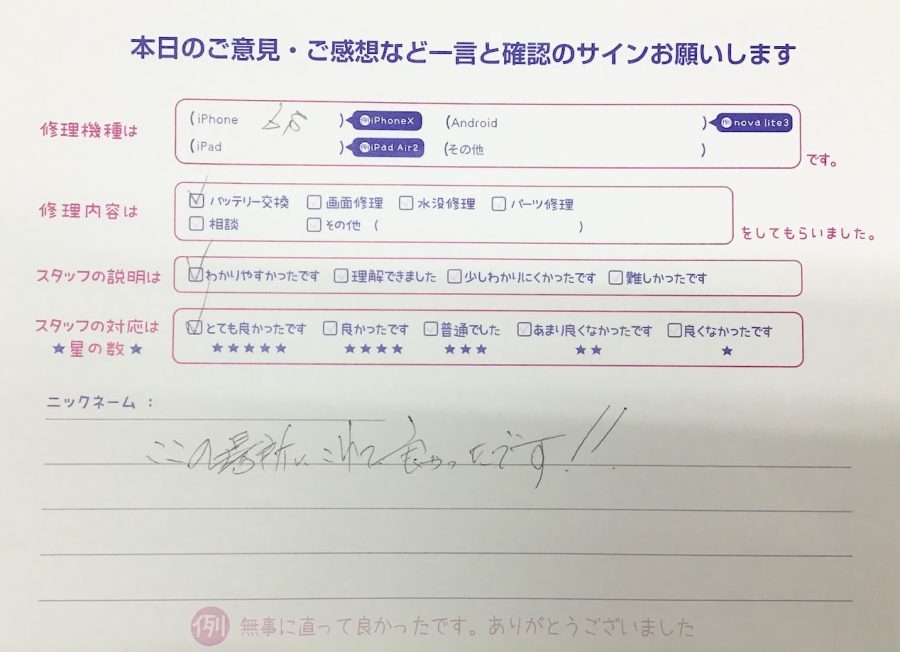 本日のご意見・ご感想など一言と確認のサインお願いします
修理機種は
(iPhone ) 例iPhoneX (Android ) 例nova lite3
(iPad ) 例iPad Air2 (その他 )
です。
修理内容は
バッテリー交換 画面修理 水没修理 パーツ修理
相談 その他 ( )
をしてもらいました。
スタッフの説明は
わかりやすかったです 理解できました 少しわかりにくかったです 難しかったです
スタッフの対応は
★星の数★
とても良かったです 良かったです 普通でした あまり良くなかったです 良くなかったです
★★★★★ ★★★★ ★★★ ★★ ★
ニックネーム：
ここの場所にこれて良かったです!!
例 無事に直って良かったです。ありがとうございました